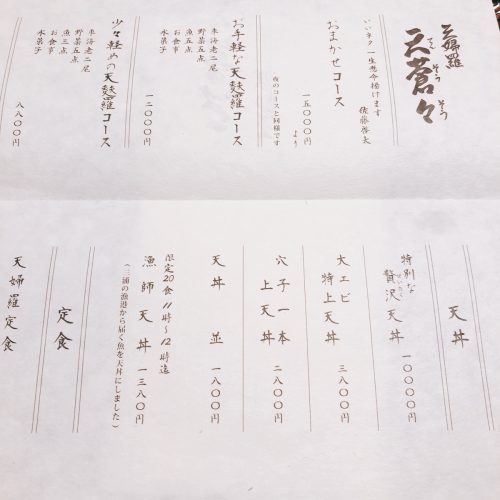 天婦羅
天蒼々
てん そう そう
いいネタ一生懸命揚げます 後藤啓太
おまかせコース
一五〇〇〇円より
夜のコースと同様です
お手軽な天麩羅コース
車海老二尾
野菜五点
魚五点
お食事
水菓子
一二〇〇〇円
少々軽めの天麩羅コース
車海老二尾
野菜五点
魚三点
お食事
水菓子
八八〇〇円
天丼
特別な
贅沢天丼 一〇〇〇〇円
ぜいたく
大エビ
特上天丼 三八〇〇円
穴子一本
上天丼 二八〇〇円
天丼 並 一八〇〇円
限定20食 11時~12時迄
漁師天丼 一三八〇円
(三浦の漁港から届く魚を天丼にしました)
定食
天婦羅定食